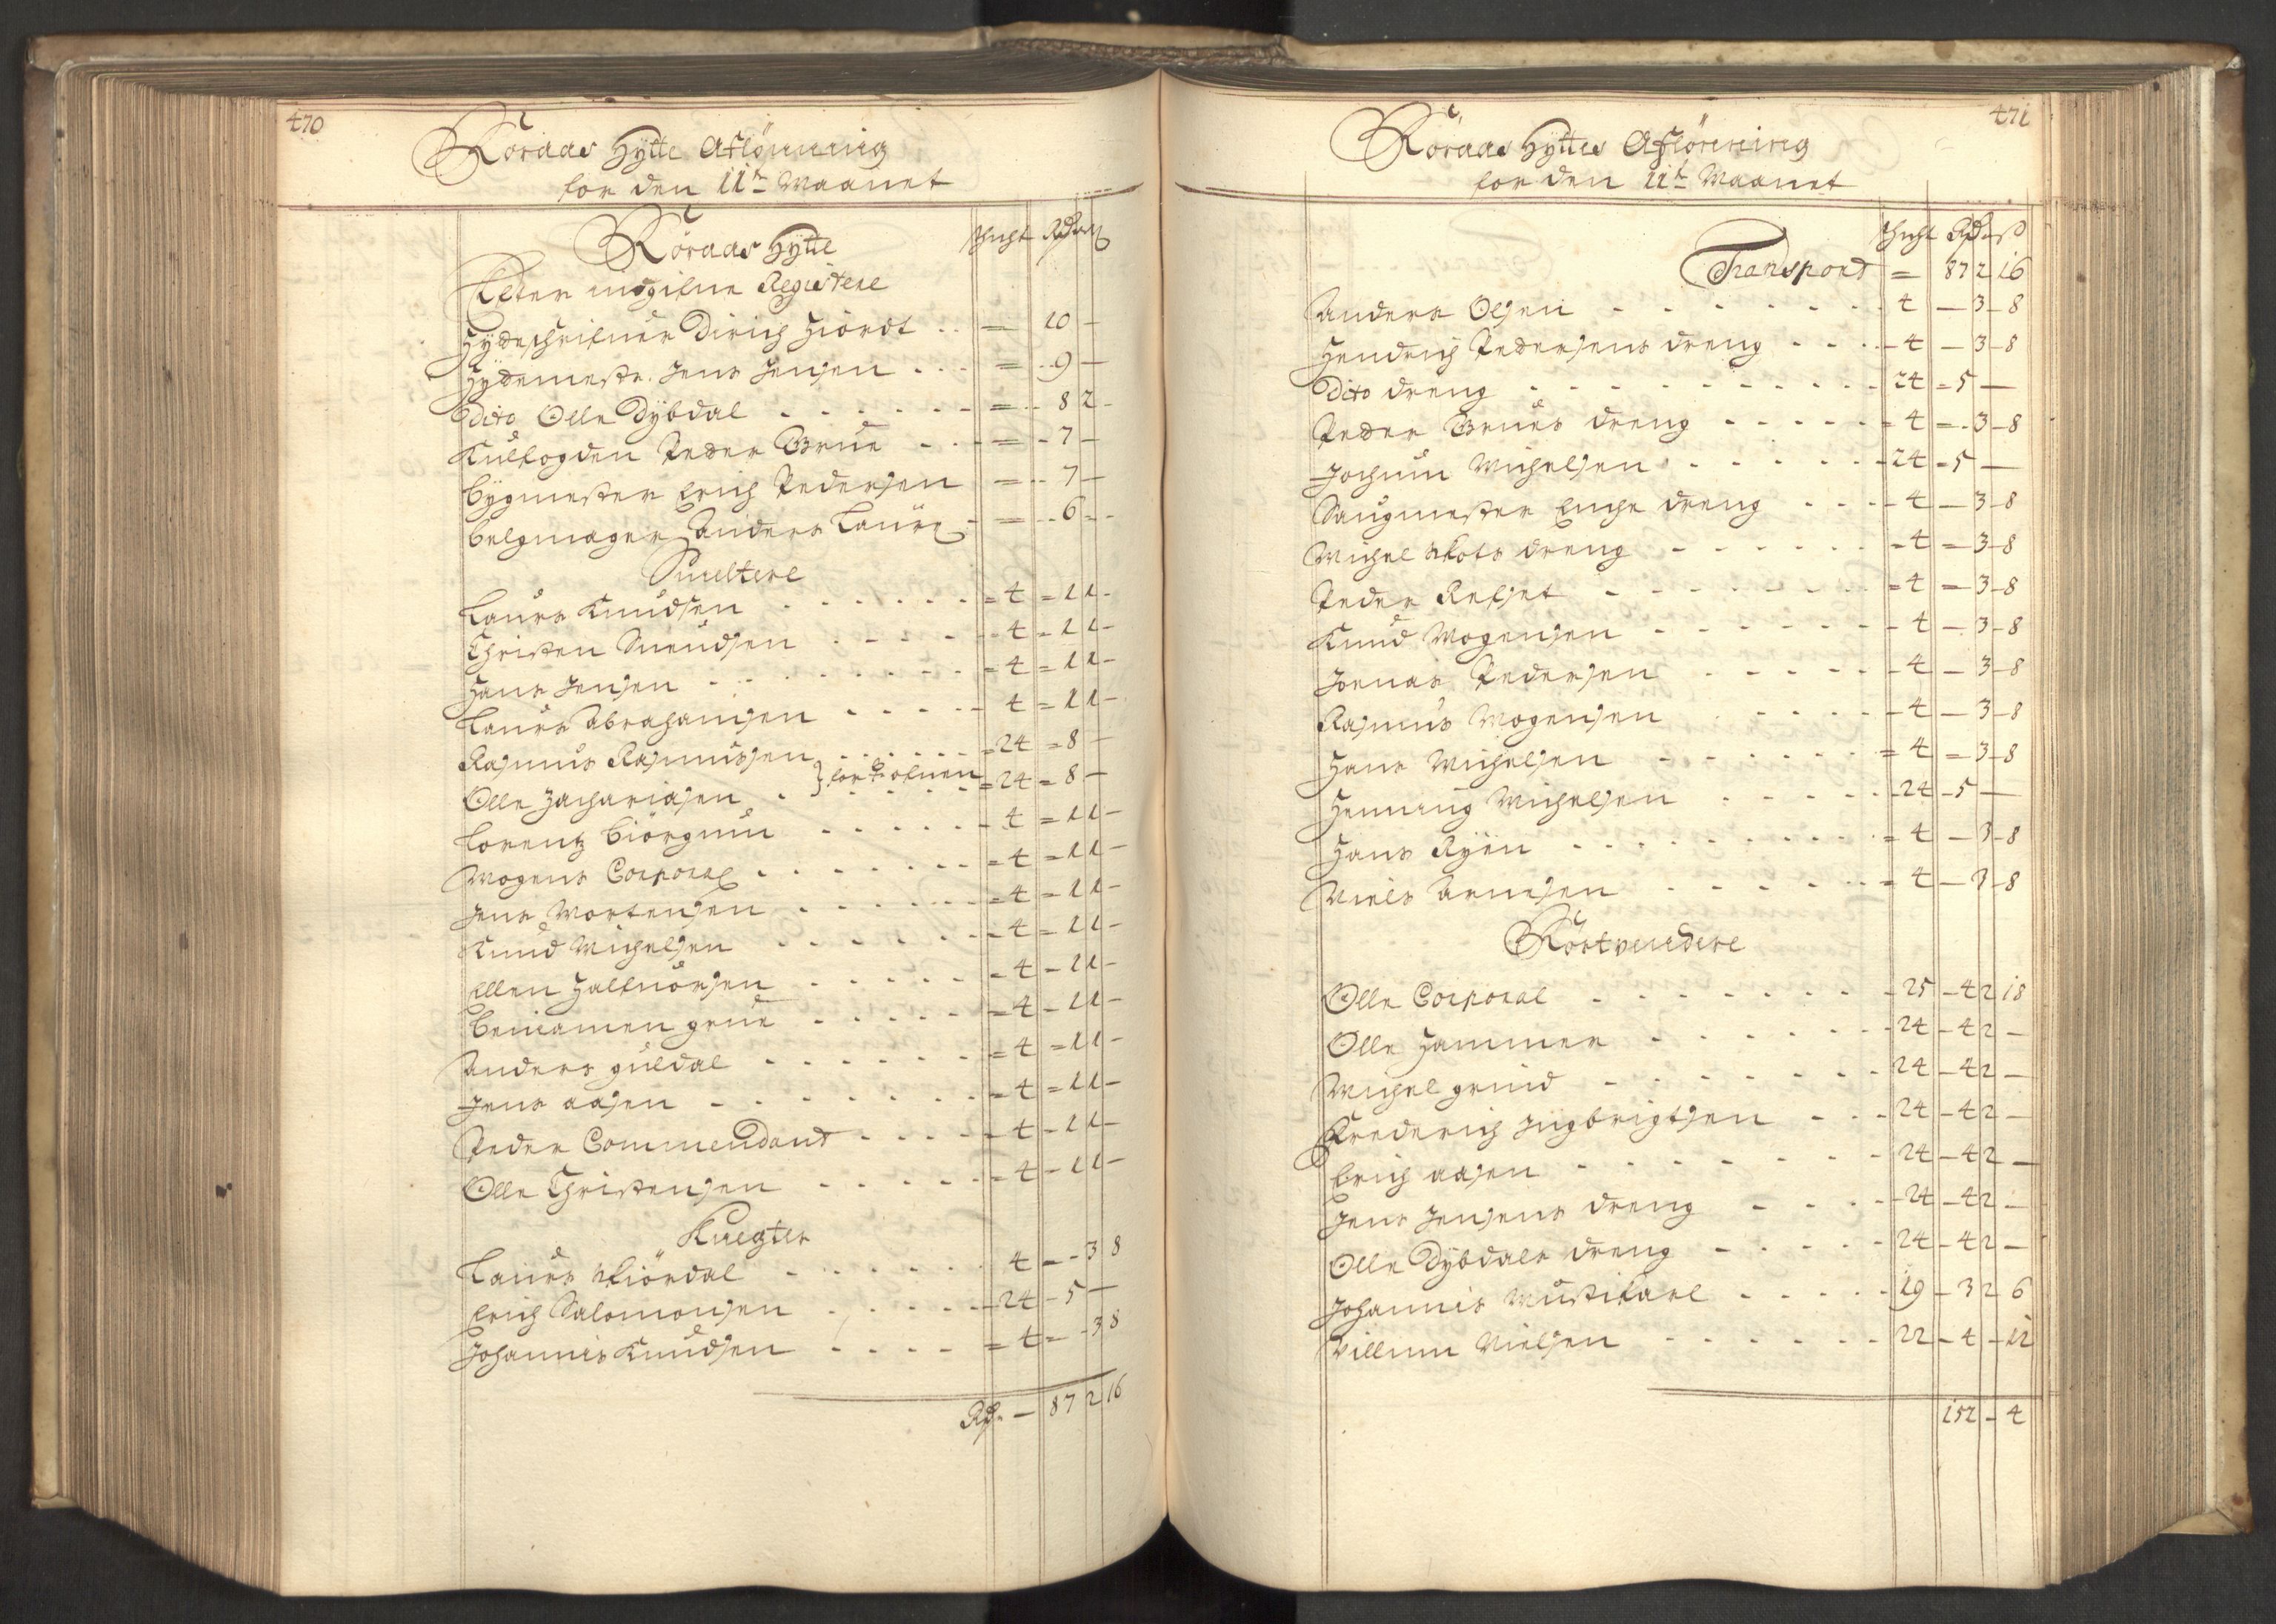 470
Röraas Hÿtte Aflönning
for den 11te Maanet
Röraas Hÿtte
Schicht Rdr
Efter indgifne Registere
Hÿdeschrifuer Dirich Hiördt . . = 10 —
Hÿdemestr. Jens Jensen . . . = 9 —
Dito Olle Dÿbdal . . . . . . = 8 2 -
Kulfogden Peder Brue . . . = 7 —
Bÿgmester Erich Pedersen = 7 —
Belgmager Anders Laurs. = 6 —
Smeltere
Laurs Knudsen . . . . . . = 4 = 1 1 -
Christen Suendsen . . . . . 4 = 1 1 -
Hans Jensen . . . . . . . = 4 = 1 1 -
Laurs Abrahamsen . . . . . 4 = 1 1 -
Rasmus Rasmussen . . . . . = 24 = 8 —
Olle Zachariasen . } for ofnen = 24 = 8 —
Lorentz Biörgum . . . . . . 4 = 1 1 -
Mogens Corporal . . . . . . = 4 = 1 1 -
Jens Mortensen . . . . . . = 4 = 1 1 -
Knud Michelsen . . . . . . = 4 = 1 1 -
Ellen Halfuorsen . . . . . - 4 - 1 1 -
Beniamen grue . . . . . = 4 - 1 1 -
Anders guldal . . . . . . = 4 = 1 1 -
Jens aasen . . . . . . . = 4 = 1 1 -
Peder Commendant . . . . - 4 - 1 1 -
Olle Christensen . . . . . = 4 - 1 1 -
Knegter
Laurs Stiördal . . . . . . 4 - - 3 8
Erich Salomonsen . . . . . - 24 - 5 —
Johannes Knudsen . . . . = 4 = - 3 8
Rdr — 87 2 16
471
Röraas Hÿttes Aflönning
for den 11te Maanet
Schicht Rdr ß
Transport = 87 2 16
Anders Olsen . . . . . . . 4 — 3 - 8
Hendrich Pedersens dreng . . . - 4 — 3 - 8
Dito dreng . . . . . . . . . . 24 = 5 —
Peder Brues dreng . . . . . = 4 = . 3 - 8
Jochum Michelsen . . . . . - 24 = 5 —
Saugmester Enche dreng . . . - 4 — 3 - 8
Michel Skots dreng . . . . . . = 4 = 3 - 8
Peder Refset . . . . . . . . = 4 = 3 - 8
Knud Mogensen . . . . . . - 4 — 3 - 8
Jornas Pedersen . . . . . - 4 — 3 - 8
Rasmus Mogensen . . . . . - 4 — 3 - 8
Hans Michelsen . . . . . . = 4 = 3 - 8
Henning Michelsen . . . . . - 24 - 5 —
Hans Rÿen . . . . . . . . . = 4 — 3 - 8
Niels Arnesen . . . . . . = 4 — 3 - 8
Röstvendere
Olle Corporal . . . . . . . - 25 - 4 2 18
Olle Hammer . . . . . . - 24 - 4 2 —
Michel grind . . . . . . . - 24 - 4 2 —
Frederich Ingbrigtsen . . . - 24 - 4 2 —
Erich aasen . . . . . . . - 24 - 4 2 —
Jens Jensens dreng . . . . - 24 - 4 2 —
Olle Dÿbdals dreng . . . . . 24 - 4 2 —
Johannis Mustikarl . . . . . 19 - 3 2 6
Villum Nielsen . . . . . . 22 - 4 - 12
152 - 4